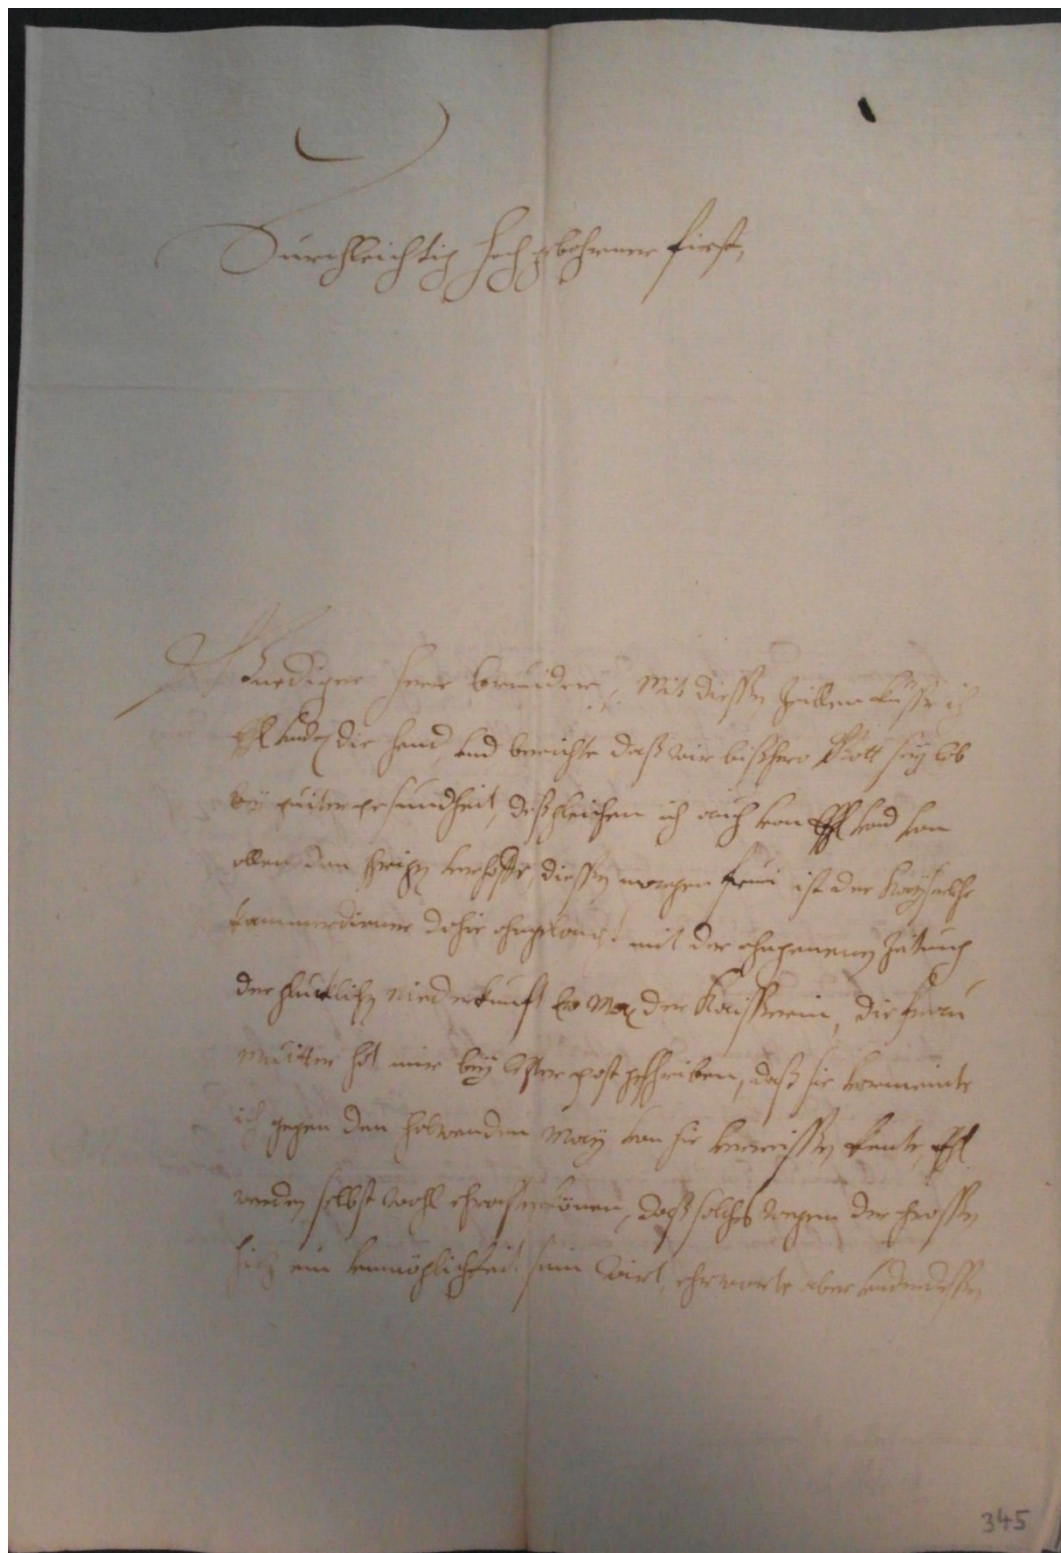 Durchleichtig hochgebohrner first,
Gnediger herr bruider, Mit diessen Zeillen kusse ich
die hand, und berichte daß wir bißhero Gott sey lob
bey guiter gesundheit, deßgleichen ich auch von
allen den verhoffe, diessen morgen frui ist der Kayserliche
kammerdiener dahir ahngelangt mit der ahngenemen Zeitung
der glucklichen niederkunft der Kaisserin, die frau
muitter hat mir bey post geschriben, daß sie vermeinte
ich gegen den halbenden May von hir verreissen kente,
werden selbst wohl können, daß solches wegen der grossen
hitz ein unmöglichkeit sein wirt, ehrwarte aber undendessen
345